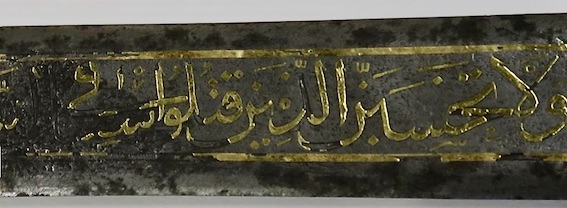 ولا تحسبن الذين قتلوا في س